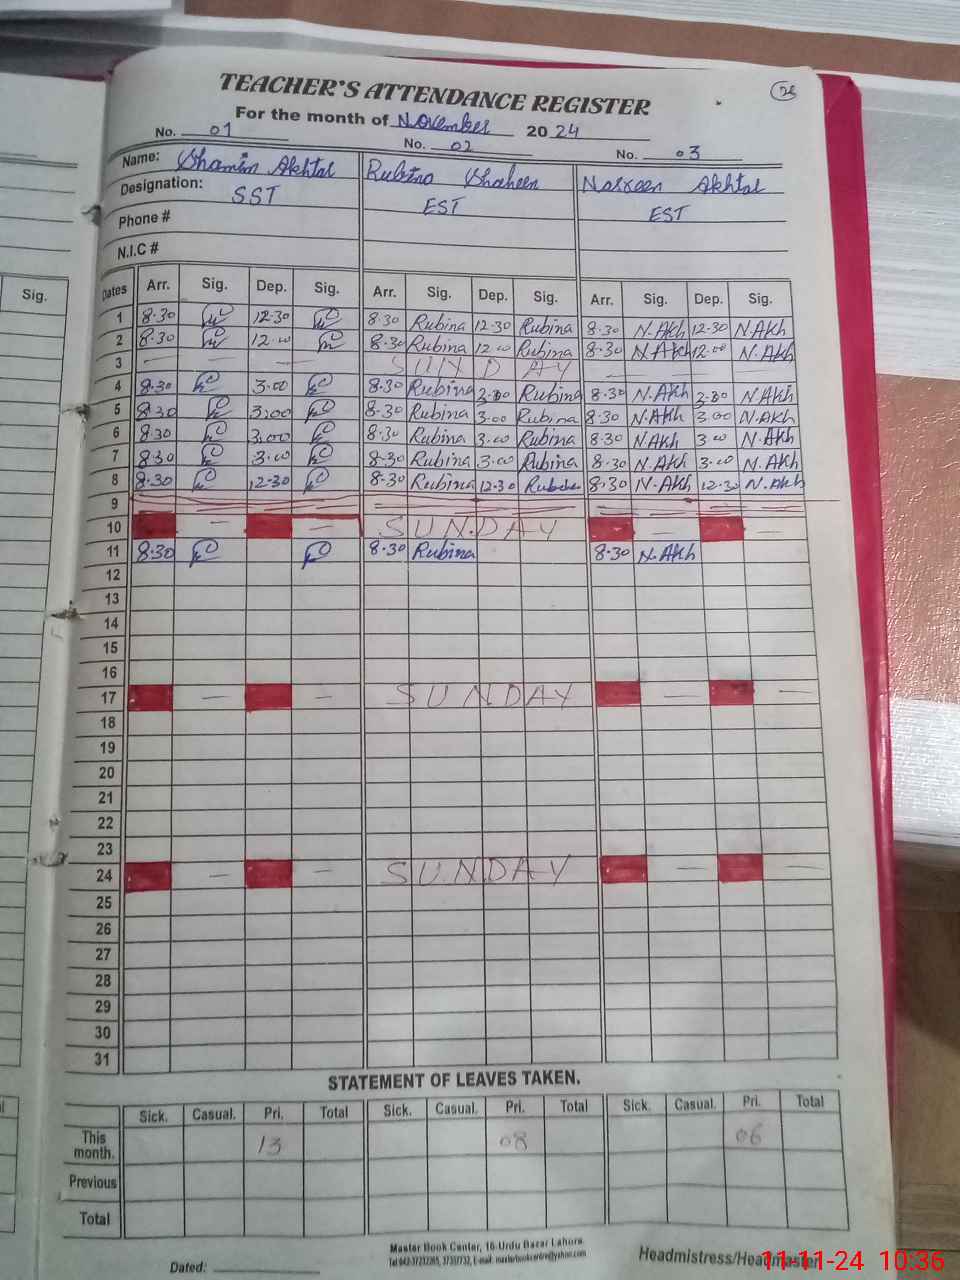 TEACHER'S ATTENDANCE REGISTER
For the month of November 2024
No. 01 No. 02 No. 03
Name: Shamim Akhtar Rubina Shaheen Nasreen Akhtar
Designation: SST EST EST
Phone #
N.I.C #
Sig.
Dates Arr. Sig. Dep. Sig. Arr. Sig. Dep. Sig. Arr. Sig. Dep. Sig.
1 8.30 12.30 8.30 Rubina 12.30 Rubina 8.30 N.Akh 12.30 N.Akh
2 8.30 12.00 8.30 Rubina 12.00 Rubina 8.30 N.Akh 12.00 N.Akh
3 — — — SUNDAY
4 8.30 3.00 8.30 Rubina 3.00 Rubina 8.30 N.Akh 3.00 N.Akh
5 8.30 3.00 8.30 Rubina 3.00 Rubina 8.30 N.Akh 3.00 N.Akh
6 8.30 3.00 8.30 Rubina 3.00 Rubina 8.30 N.Akh 3.00 N.Akh
7 8.30 3.00 8.30 Rubina 3.00 Rubina 8.30 N.Akh 3.00 N.Akh
8 8.30 12.30 8.30 Rubina 12.30 Rubina 8.30 N.Akh 12.30 N.Akh
9
10 — — SUNDAY — —
11 8.30 8.30 Rubina 8.30 N.Akh
12
13
14
15
16
17 — — SUNDAY — —
18
19
20
21
22
23
24 — — SUNDAY — —
25
26
27
28
29
30
31
STATEMENT OF LEAVES TAKEN.
Sick. Casual. Pri. Total Sick. Casual. Pri. Total Sick. Casual. Pri. Total
This month. 13 08 06
Previous
Total
Master Book Center, 16-Urdu Bazar Lahore
Dated: Headmistress/Headmaster
11-11-24 10:36